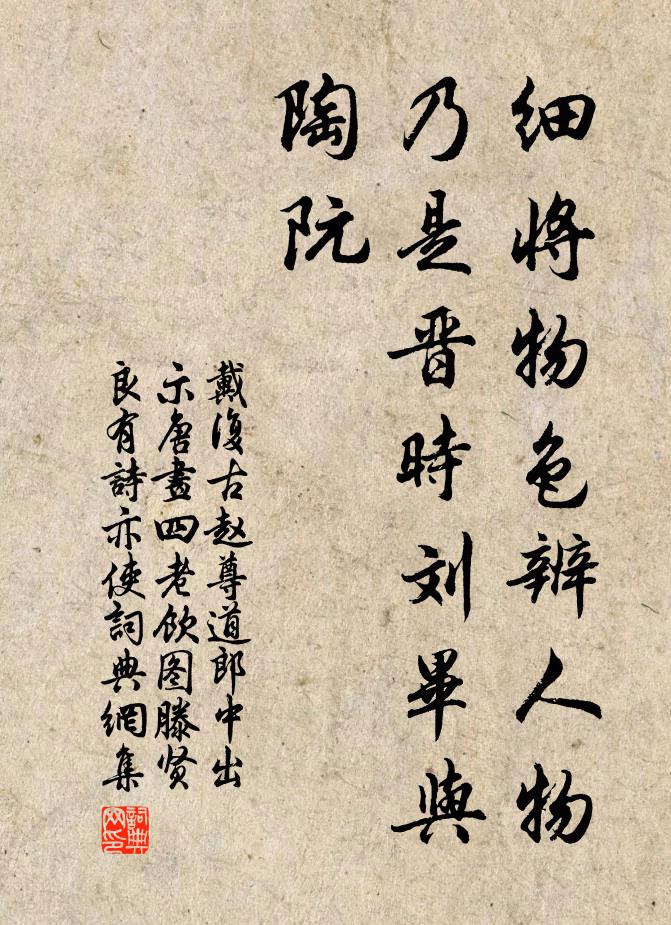 细将物色辨人物
乃是晋時刘畢與
陶阮
戴復古赵尊道郎中出
示唐畫四老飲图滕贤
良有詩亦使詞典網集
詞典網印